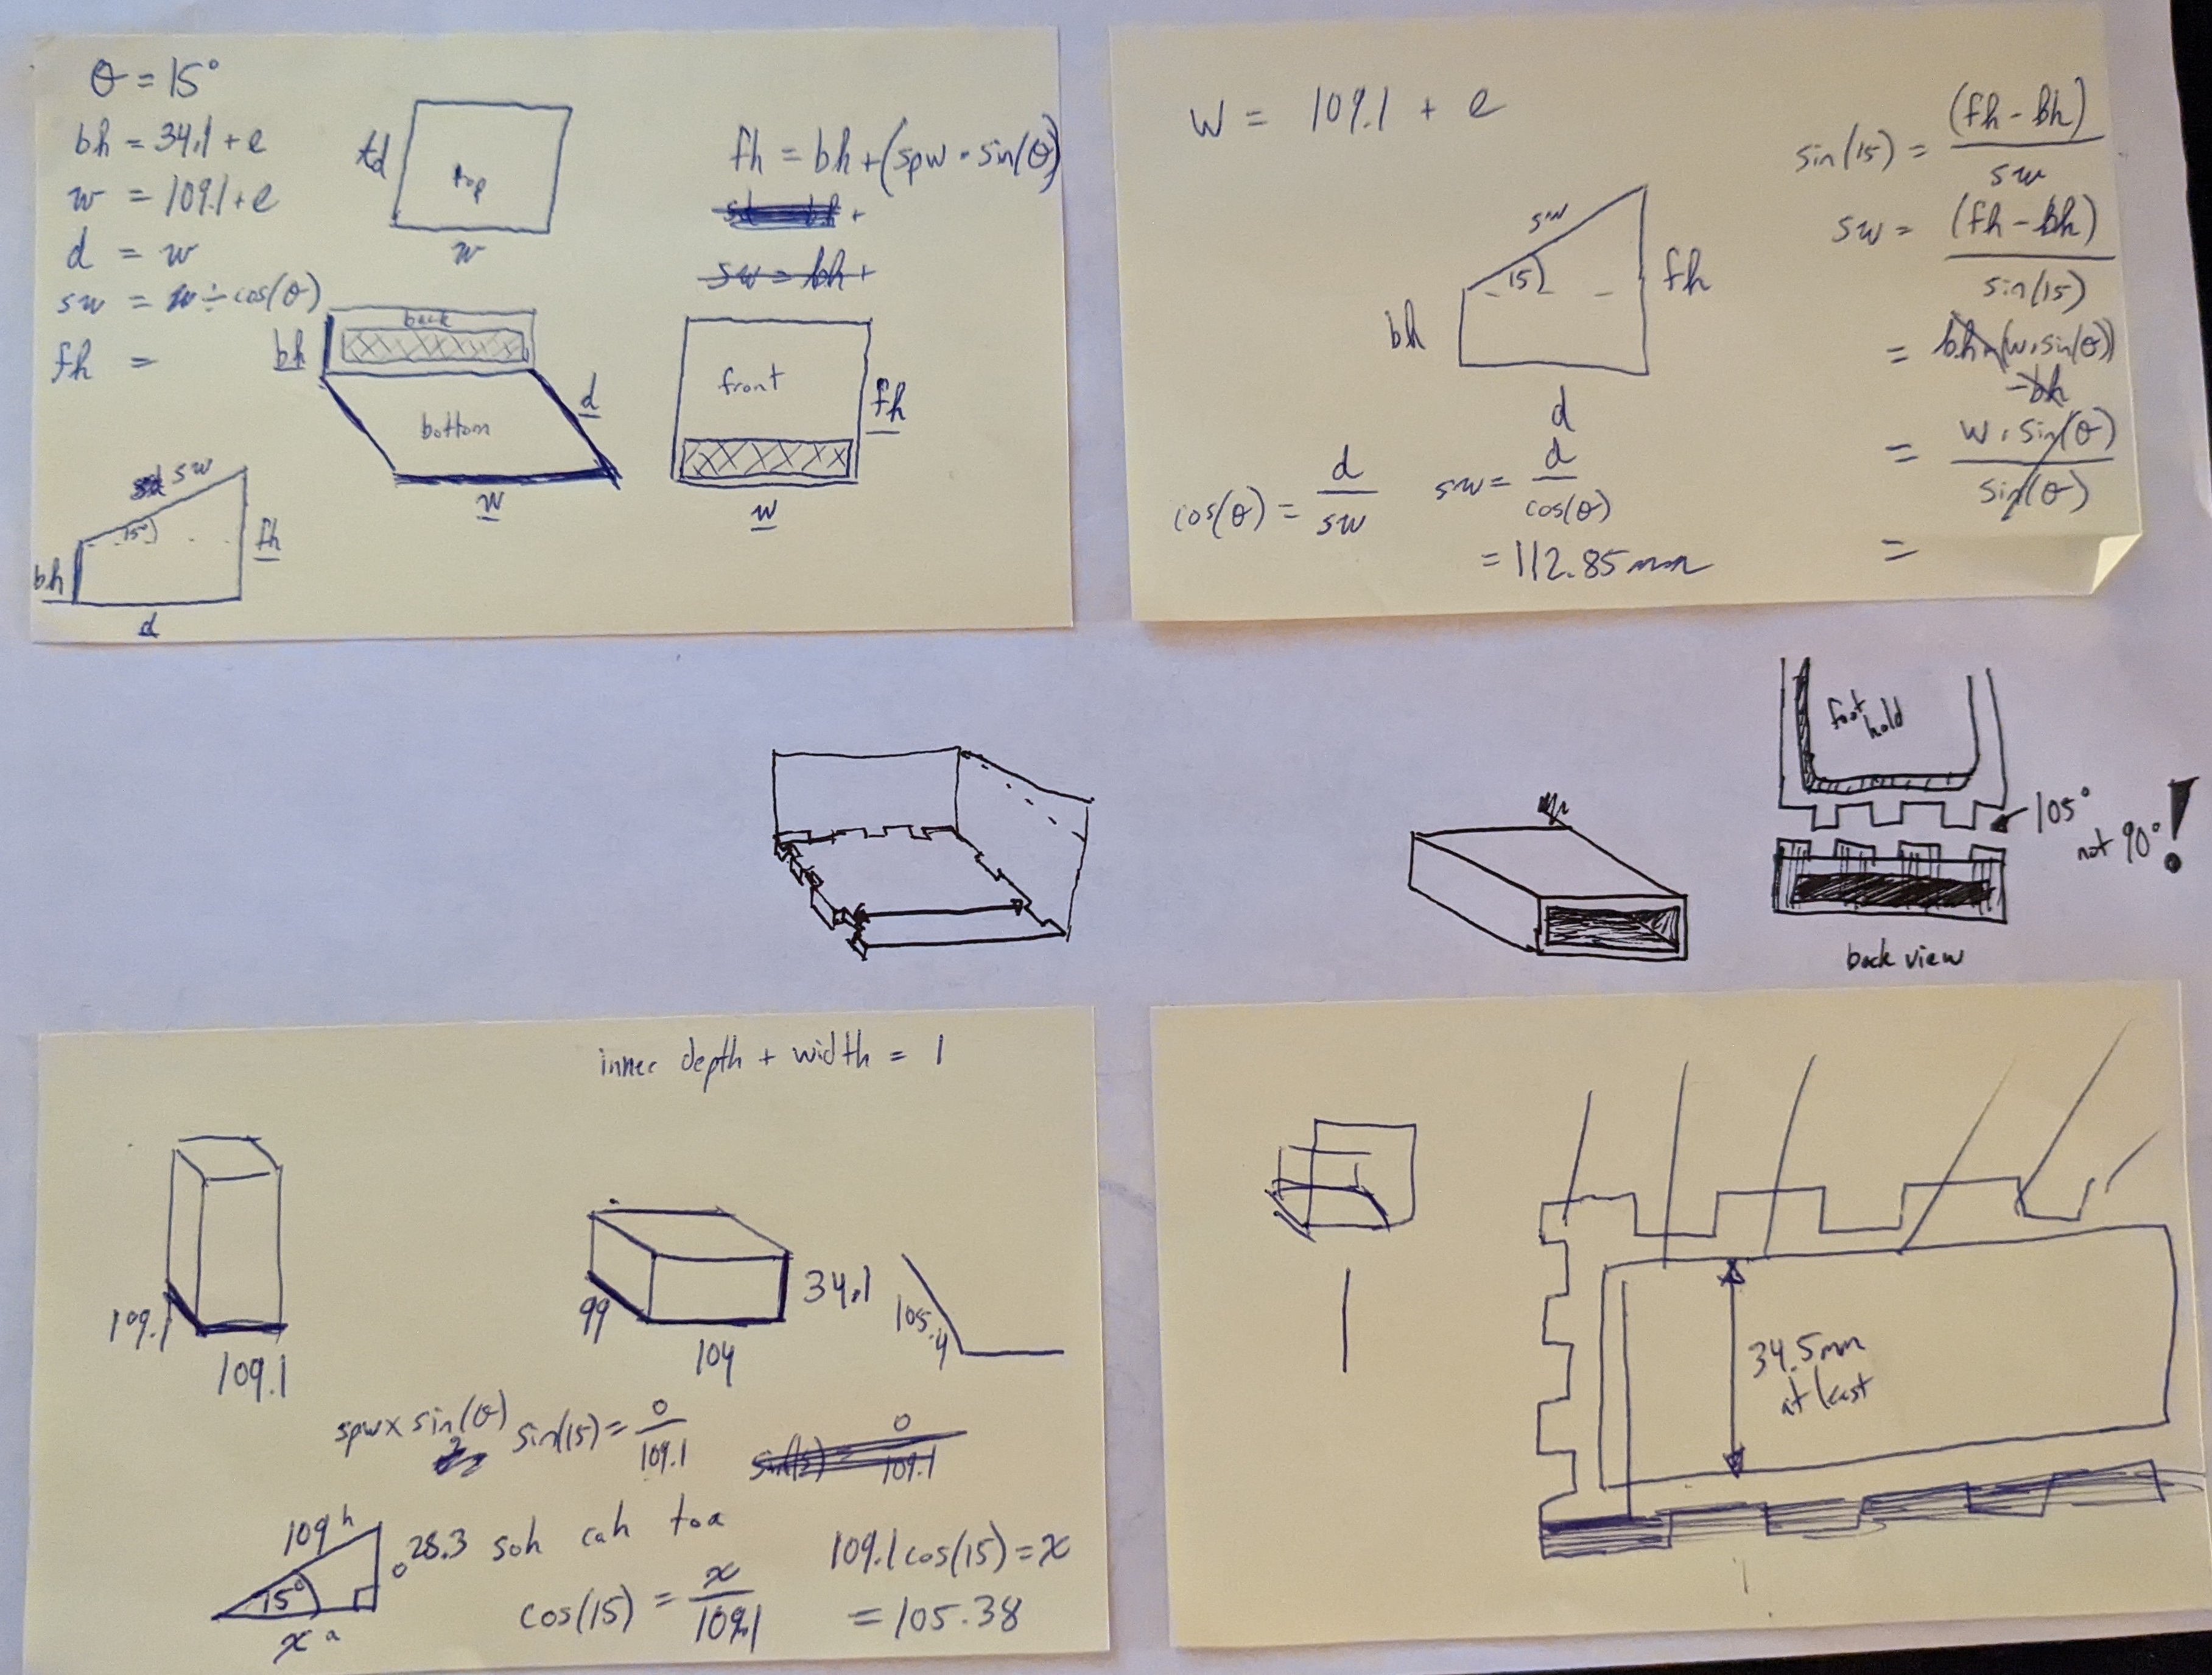 θ = 15°
bh = 34.1 + e
w = 109.1 + e
d = w
sw = w ÷ cos(θ)
fh =
td
top
w
fh = bh + (spw · sin(θ)
sw = bh +
bh
back
bottom
d
w
front
fh
w
sw
15°
bh
fh
d
w = 109.1 + e
sw
15
bh
fh
d
cos(θ) = d / sw
sw = d / cos(θ)
= 112.85mm
sin(15) = (fh - bh) / sw
sw = (fh - bh) / sin(15)
= bh + (w · sin(θ))
- bh
= w · sin(θ) / sin(θ)
=
foot hold
105°
not 90°!
back view
inner depth + width = 1
109.1
109.1
99
104
34.1
105.4
spw x sin(θ)
sin(15) = o / 109.1
sin(15) = o / 109.1
109 h
15°
o 28.3
x a
soh cah toa
cos(15) = x / 109.1
109.1 cos(15) = x
= 105.38
34.5mm
at least